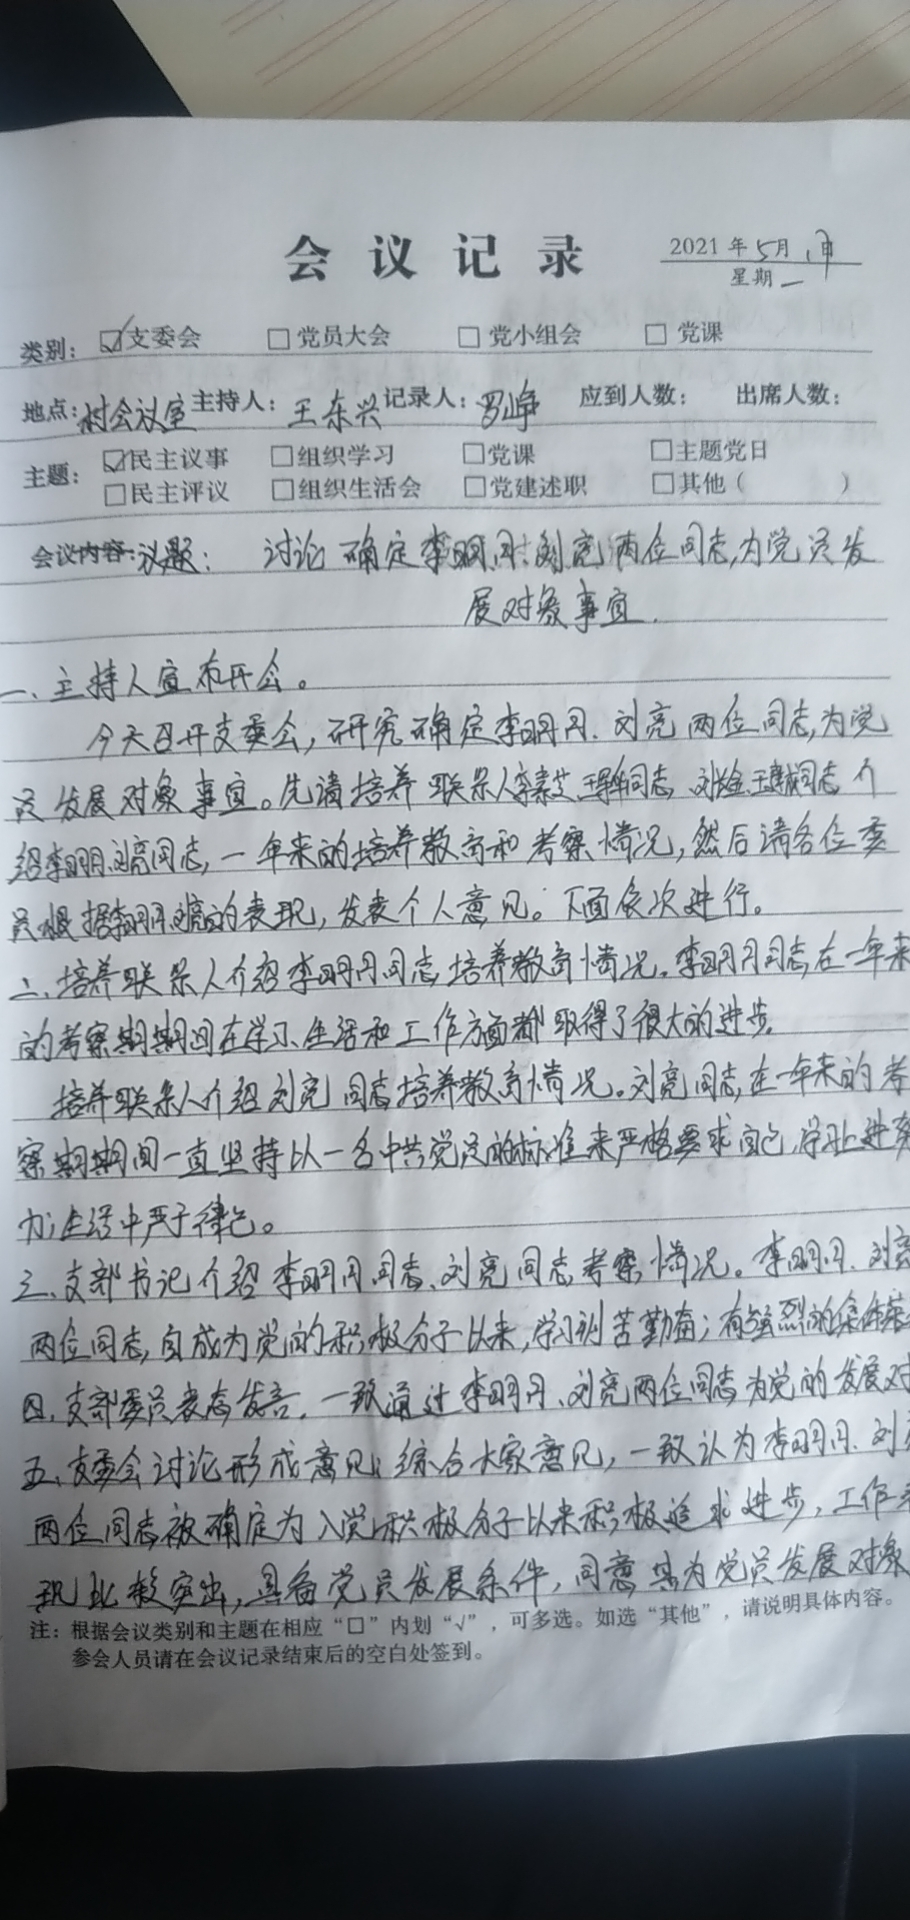 会议记录
2021年5月 日
星期一
类别：☑支委会 □党员大会 □党小组会 □党课
地点：村会议室 主持人：王东兴 记录人：罗峥 应到人数： 出席人数：
主题：☑民主议事 □组织学习 □党课 □主题党日
□民主评议 □组织生活会 □党建述职 □其他（ ）
会议内容：议题：讨论确定李明月、刘亮两位同志，为党员发
展对象事宜.
一、主持人宣布开会。
今天召开支委会，研究确定李明月、刘亮两位同志，为党
员发展对象事宜。先请培养联系人李素芝 同志, 同志介
绍李明月、刘亮同志，一年来的培养教育和考察情况，然后请各位委
员根据李明月、刘亮的表现，发表个人意见。下面依次进行。
二、培养联系人介绍李明月同志培养教育情况。李明月同志，在一年来
的考察期期间在学习、生活和工作方面都取得了很大的进步。
培养联系人介绍刘亮同志培养教育情况。刘亮同志，在一年来的考
察期期间一直坚持以一名中共党员的标准来严格要求自己，学习上进
力；生活中严于律己。
三、支部书记介绍李明月同志、刘亮同志考察情况。李明月、刘亮
两位同志，自成为党的积极分子以来，学习刻苦勤奋；有强烈的集体荣
四、支部委员表态发言。一致通过李明月、刘亮两位同志为党的发展对
五、支委会讨论形成意见：综合大家意见，一致认为李明月、刘亮
两位同志被确定为入党积极分子以来积极追求进步，工作表
现比较突出，具备党员发展条件，同意其为党员发展对象
注：根据会议类别和主题在相应“□”内划“√”，可多选。如选“其他”，请说明具体内容。
参会人员请在会议记录结束后的空白处签到。